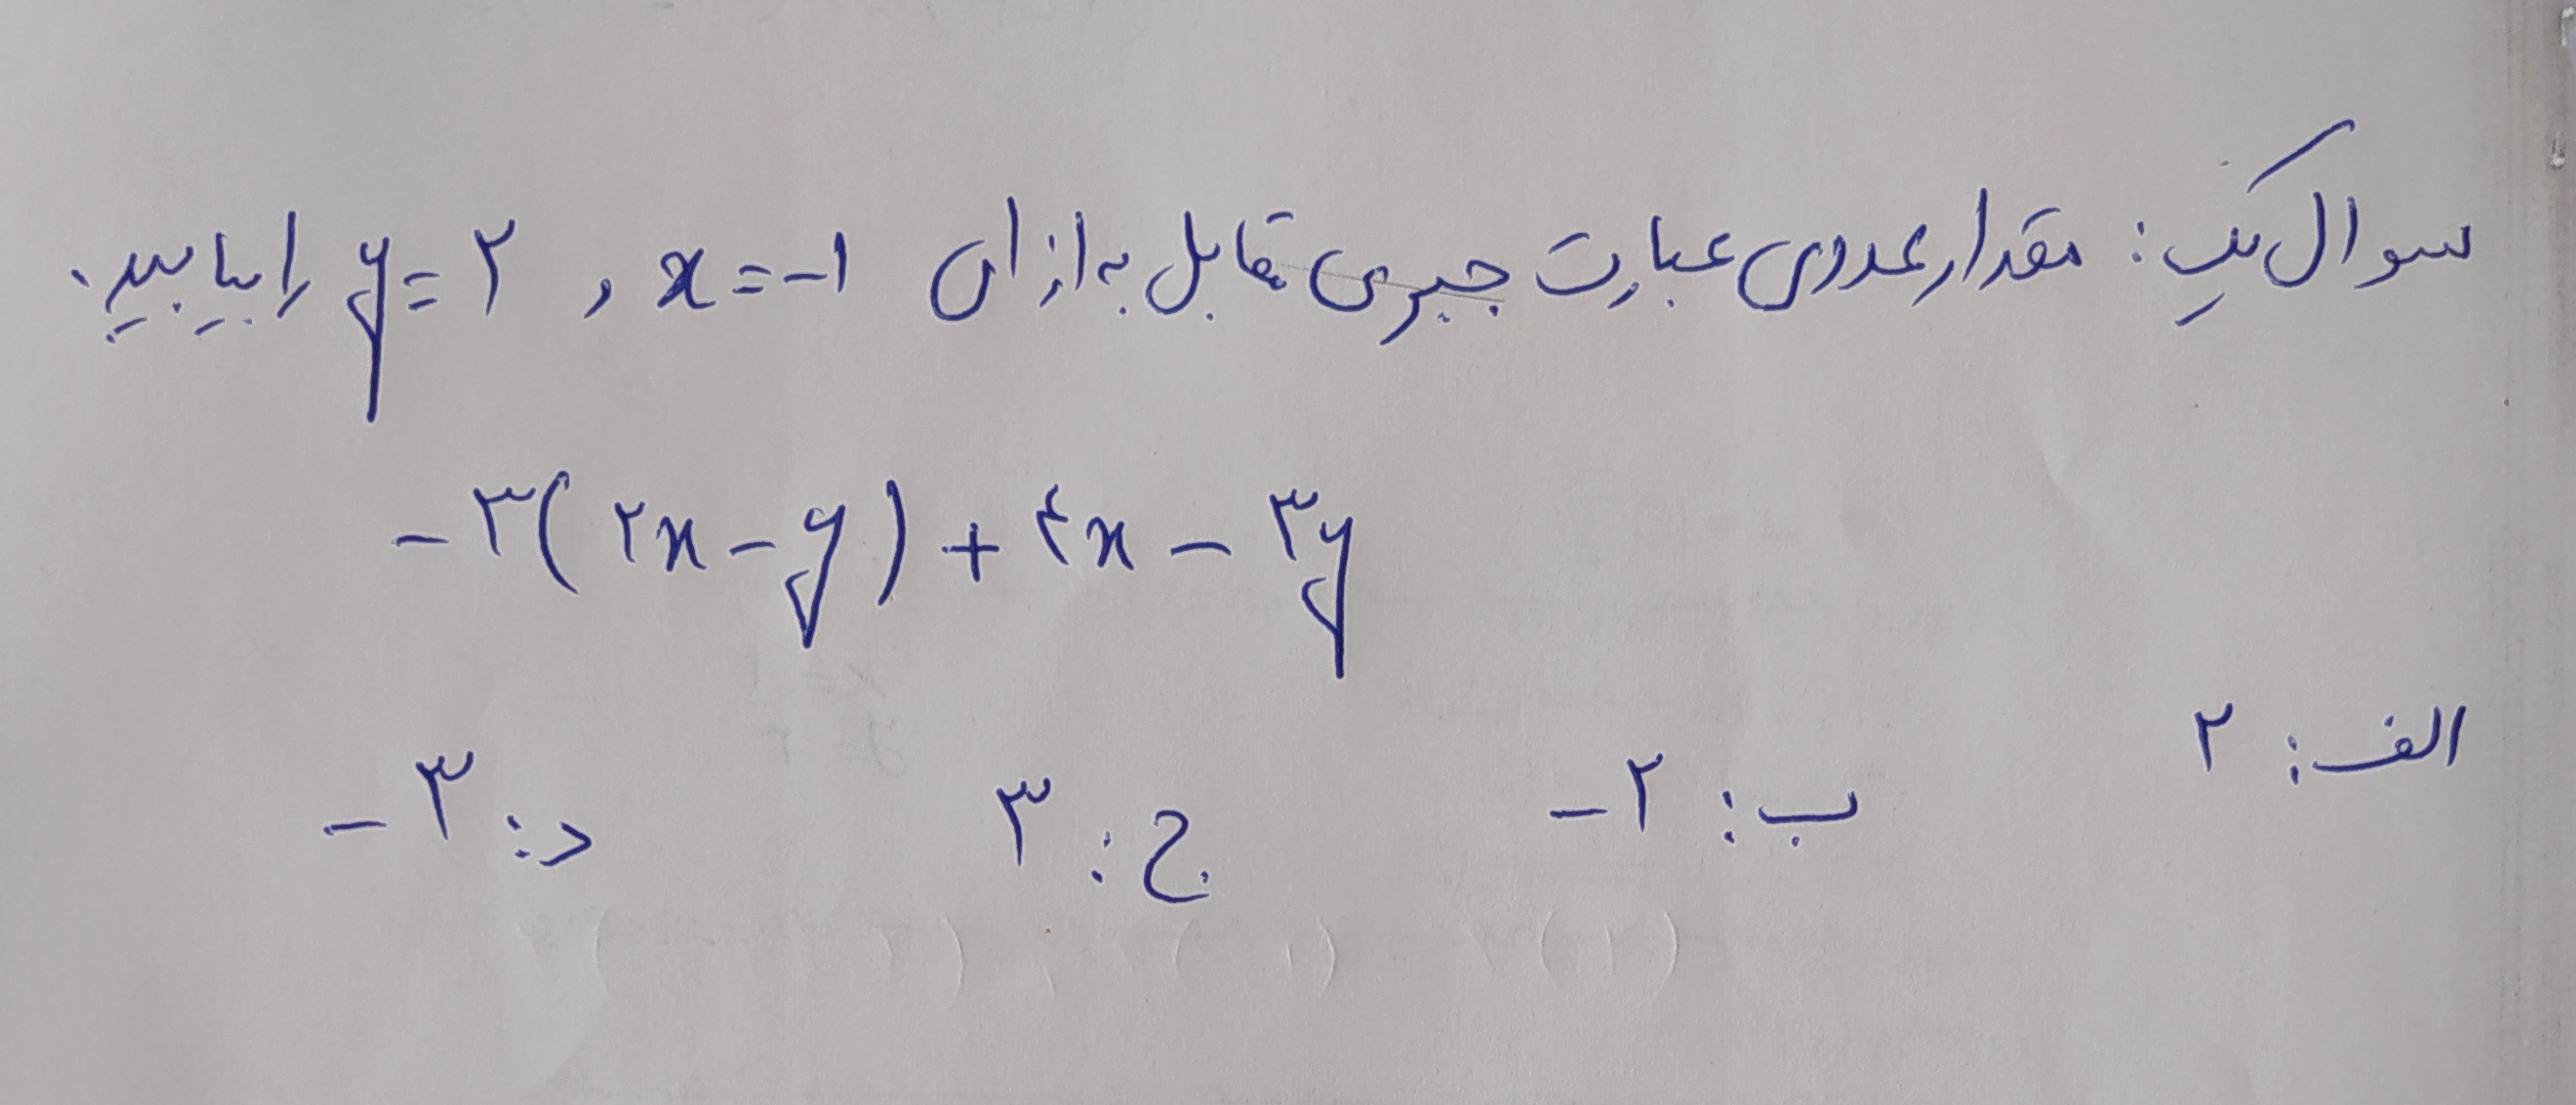 سوال یک: مقدار عددی عبارت جبری مقابل به ازای x=-۱ , y=۲ را بیابید.
-۳(۲x-y)+۴x-۳y
الف: ۲
ب: -۲ ج: ۳ د: -۳